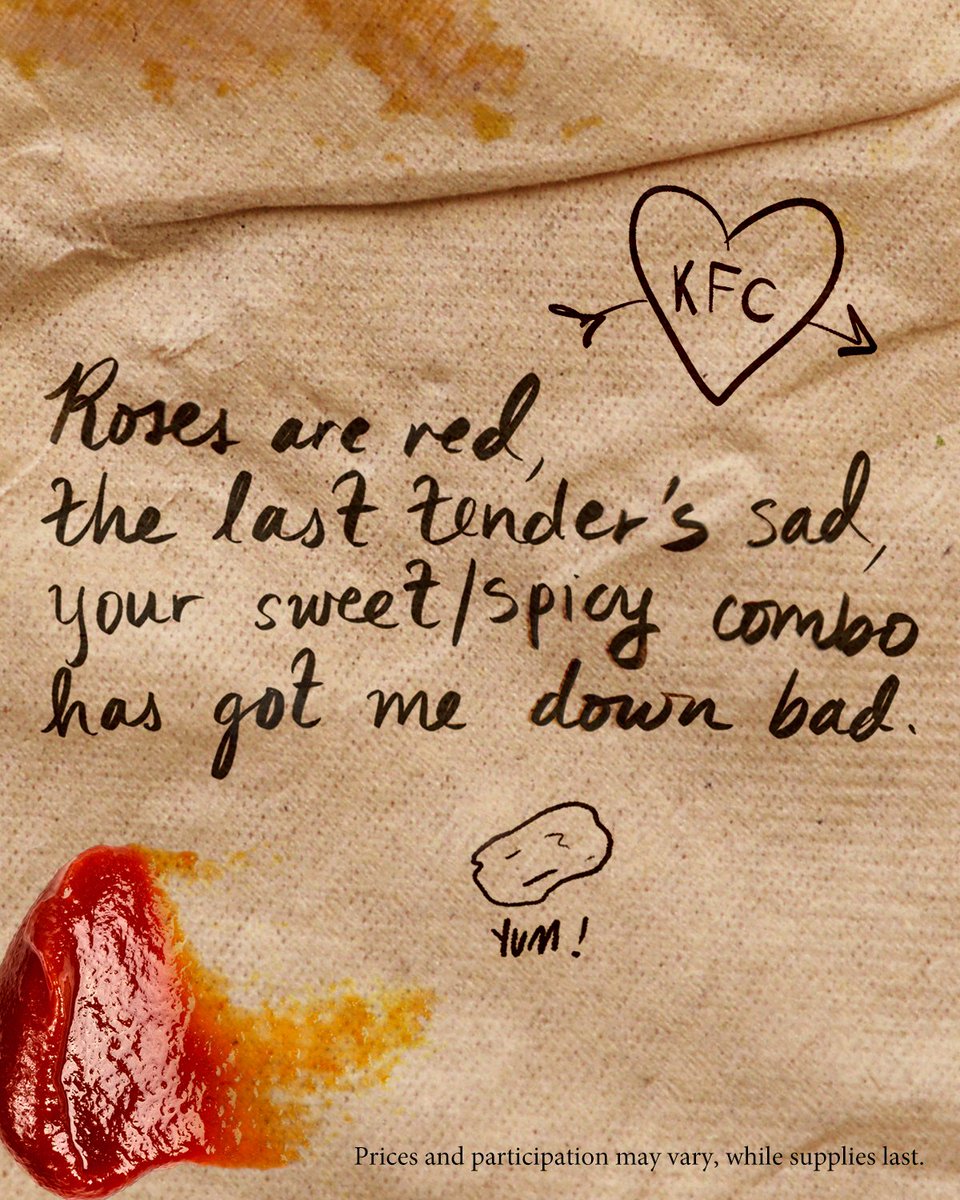 KFC
Roses are red,
the last tender's sad,
your sweet/spicy combo
has got me down bad.
YUM!
Prices and participation may vary, while supplies last.